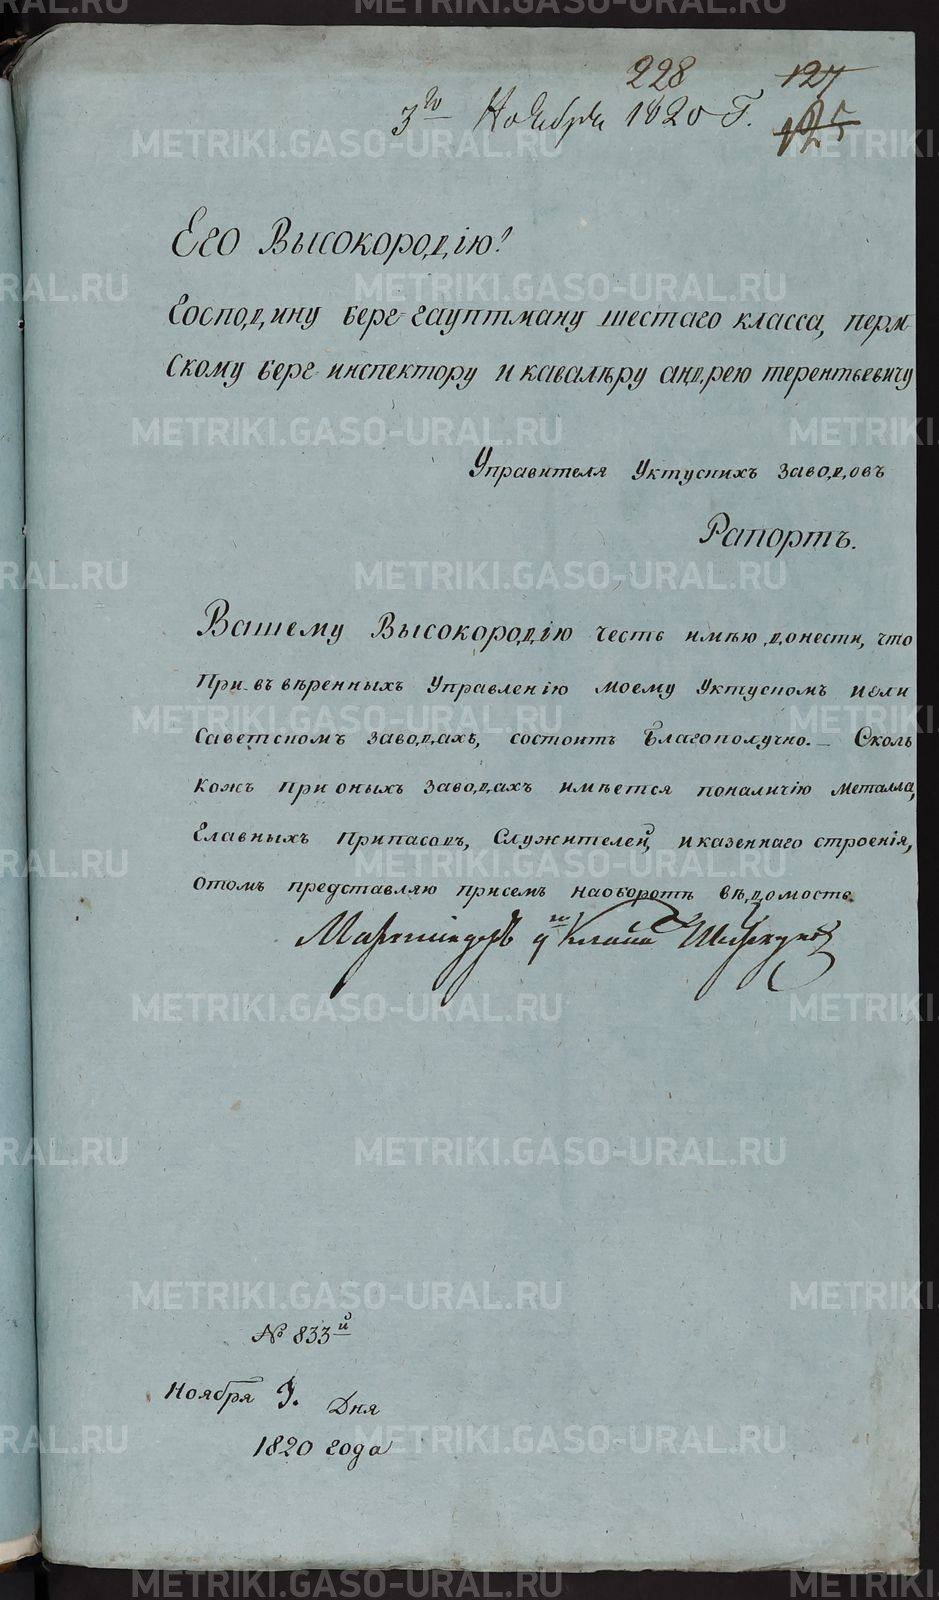 228 127
3го Ноября 1820 Г. 125
Его Высокородію!
Господину берг-гауптману шестаго класса, перм-
скому берг-инспектору и кавалѣру андрею терентьевичу
Управителя Уктусихъ заводовъ
Рапортъ.
Вашему Высокородію честь имѣю донести, что
При ввѣренныхъ Управленію моему Уктусномъ или
Саветсномъ заводахъ, состоитъ благополучно.— Сколь
кожъ при оныхъ заводахъ имѣется поналичію металла,
Главныхъ припасовъ, служителей, и казеннаго строенія,
отомъ представляю присемъ наоборотѣ вѣдомость.
Маркшейдеръ 9го класса
№ 833й
Ноября 3. Дня
1820 года
METRIKI.GASO-URAL.RU